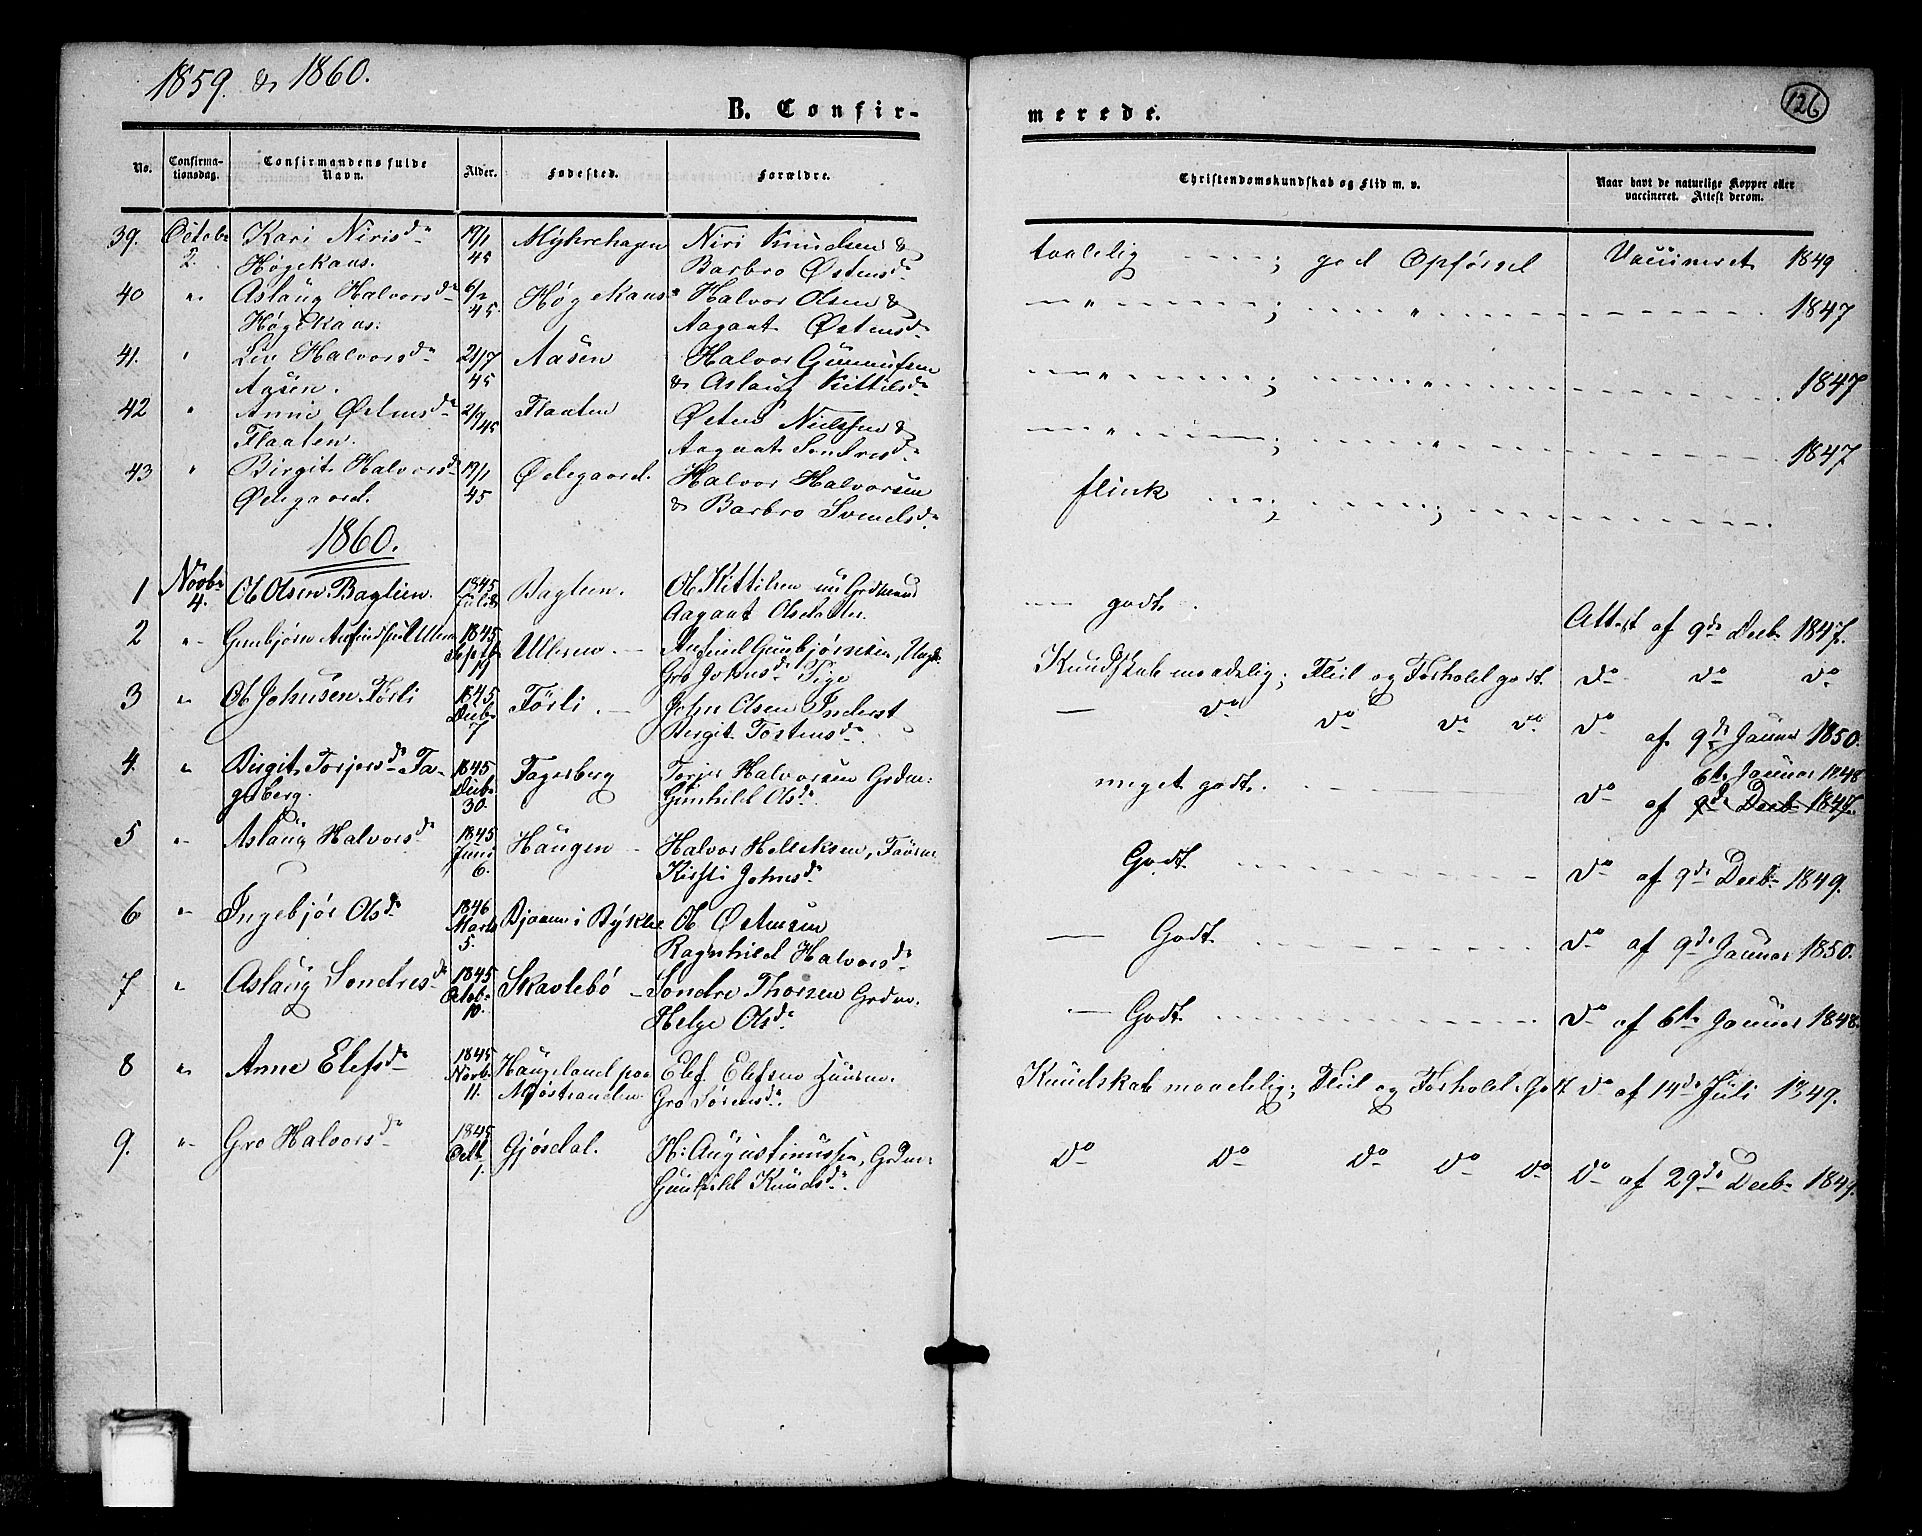 1859. & 1860.
126
B. Confirmerede.
No. Confirmationsdag. Confirmandens fulde Navn. Alder. Fødested. Forældre. Christendomskundskab og Flid m. v. Naar havt de naturlige Kopper eller vaccineret. Attest derom.
39. Octobr 2. Kari Nirisdr Høgekaas. 19/1 45 Myhrehagen Niri Knudsen & Barbro Østensdr taalelig - - - ; god Opførsel Vaccineret 1849
40 " Aslaug Halvorsdr Høgekaas. 6/2 45 Høgekaas Halvor Olsen & Aagaat Østensdr - " - - - ; - - " - - - 1847
41. " Liv Halvorsdr Aasen. 21/7 45 Aasen Halvor Gunnufsen & Aslaug Kittilsdr - " - - - ; - - " - - - 1847
42 " Anne Østensdr Flaaten. 2/9 45 Flaaten Østen Nielssen & Aagaat Sondresdr - " - - - ; - - " - - - 1847
43 " Birgit Halvorsdr Ødegaard. 19/1 45 Ødegaard. Halvor Halvorsen & Barbro Svendsdr flink - - ; - - - ; - - -
1860.
1 Novbr 4. Ol Olsen Baglien. 1845 Juli Baglien. Ol Kittilsen Grdmand Aagaat Olsdatter - godt. Attest af 9de Decbr 1847.
2 " Gunbjørn Aufindsøn Ullern 1845 Septbr 19 Ullern - Aufind Gunbjørnsen, Gro Johnsdr Pige Kundskab maadelig; Flid og Forhold godt do do do
3 " Ol Johnsen Førli 1845 Decbr 7 Førli - John Olsen Inderst Birgit Tostensdr - do do do do do af 9de Januar 1850.
4. " Birgit Torjersdr Fagerberg. 1845 Decbr 30. Fagerberg Torjer Halvorsen Grdm: Gunhild Olsdr meget godt. - - - do af 6te Januar 1848 9de Decbr 1847.
5 " Aslaug Halvorsdr 1845 Juni 6. Haugen - Halvor Helleksen, Kirsti Johnsdr Godt - - - do af 9de Decbr 1849.
6 " Ingebjør Olsdr 1846 Marts 5. Bjaaen i Bykle Ol Østensen Ragnhild Halvorsdr - Godt. - - - do af 9de Januar 1850.
7 " Aslaug Sondresdr 1845 Octobr 10. Skavlebø - Sondre Thorsen Grdm. Helge Olsdr - Godt. - - - do af 6te Januar 1848.
8 " Anne Elefsdr 1845 Novbr 11. Haugeland paa Møstranden. Elef Elefsen Gro Sørensdr Kundskab maadelig; Flid og Forhold Godt do af 14de Juli 1849.
9. " Gro Halvorsdr 1845 Octbr 1. Gjøsdal. H: Augustinussen, Grdm: Gunhild Knudsdr do do do do do do af 29de Decbr 1849.